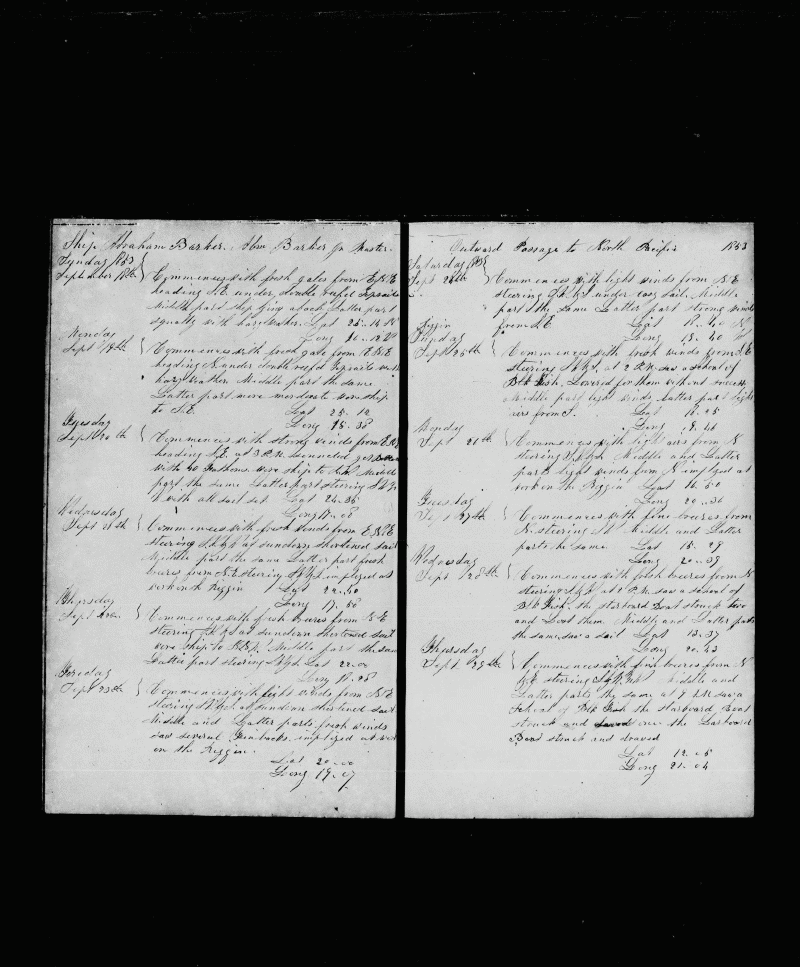 Ship Abraham Barker. Abm Barker Jr Master.
Sunday 1853
September 18th Commences with fresh gales from E.N.E
heading S.E. under double reefed topsails
Middle part ship lying aback Latter part
squally with
Monday
Sept 19th Commences with fresh gales from E.N.E
heading N. under double reefd topsails with
hazy wether Middle part the same
Latter part more moderate wore ship
to S.E. Lat 25.12
Long 18.38
Tuesday
Sept 20th Commences with strong winds from E.N.E
heading S.E. at 3 P.M. sounded got
with 40 Fathoms wore ship to Middle
part the same Latter part steering
with all sail set Lat 24.36
Long 18.08
Wednesday
Sept 21th Commences with fresh winds from E.N.E
steering at sundown shortened sail
Middle part the same Latter part fresh
breezes from N.E steering imployed at
work on Riggin Lat 22.50
Long 17.50
Thursday
Sept Commences with fresh breezes from N.E
steering at sundown shortened sail
wore ship to Middle part the same
Latter part steering Lat 22.00
Long
Fryday
Sept 23th Commences with light winds from N.E
steering at sundown shortened sail
Middle and Latter parts fresh winds
saw several Finbacks. imployed at work
on the Riggin.
Lat 20.00
Long 19.07
Outward Passage to North Pacific 1853
Saturday
Sept 24th Commences with light winds from N.E
steering under easy sail. Middle
part the same Latter part strong winds
from N.E Lat
Long 19.40 W
Sunday
Sept 25th Commences with fresh winds from
steering at 2 P.M. saw a school of
Blk Fish. Lowered for them without success
Middle part light winds Latter part light
airs from Lat
Long
Monday
Sept 26th Commences with light airs from N
steering Middle and Latter
parts light winds from N imployed at
work on the Riggin Lat 16.50
Long 20.36
Tuesday
Sept 27th Commences with fine breezes from
N. steering Middle and Latter
parts the same Lat 15.29
Long 20.39
Wednesday
Sept 28th Commences with fresh breezes from N
steering at P.M. saw a school of
Blk Fish. the starboard Boat struck two
and Lost them Middle and Latter parts
the same, saw a sail Lat 13.37
Long 20.43
Thursday
Sept. 29th Commences with fine breezes from N
N.E steering Middle and
Latter parts the same at 7 A.M. saw a
School of Blk Fish the Starboard Boat
struck and saved one the Larboard
Boat struck and
Lat 12.05
Long 21.04